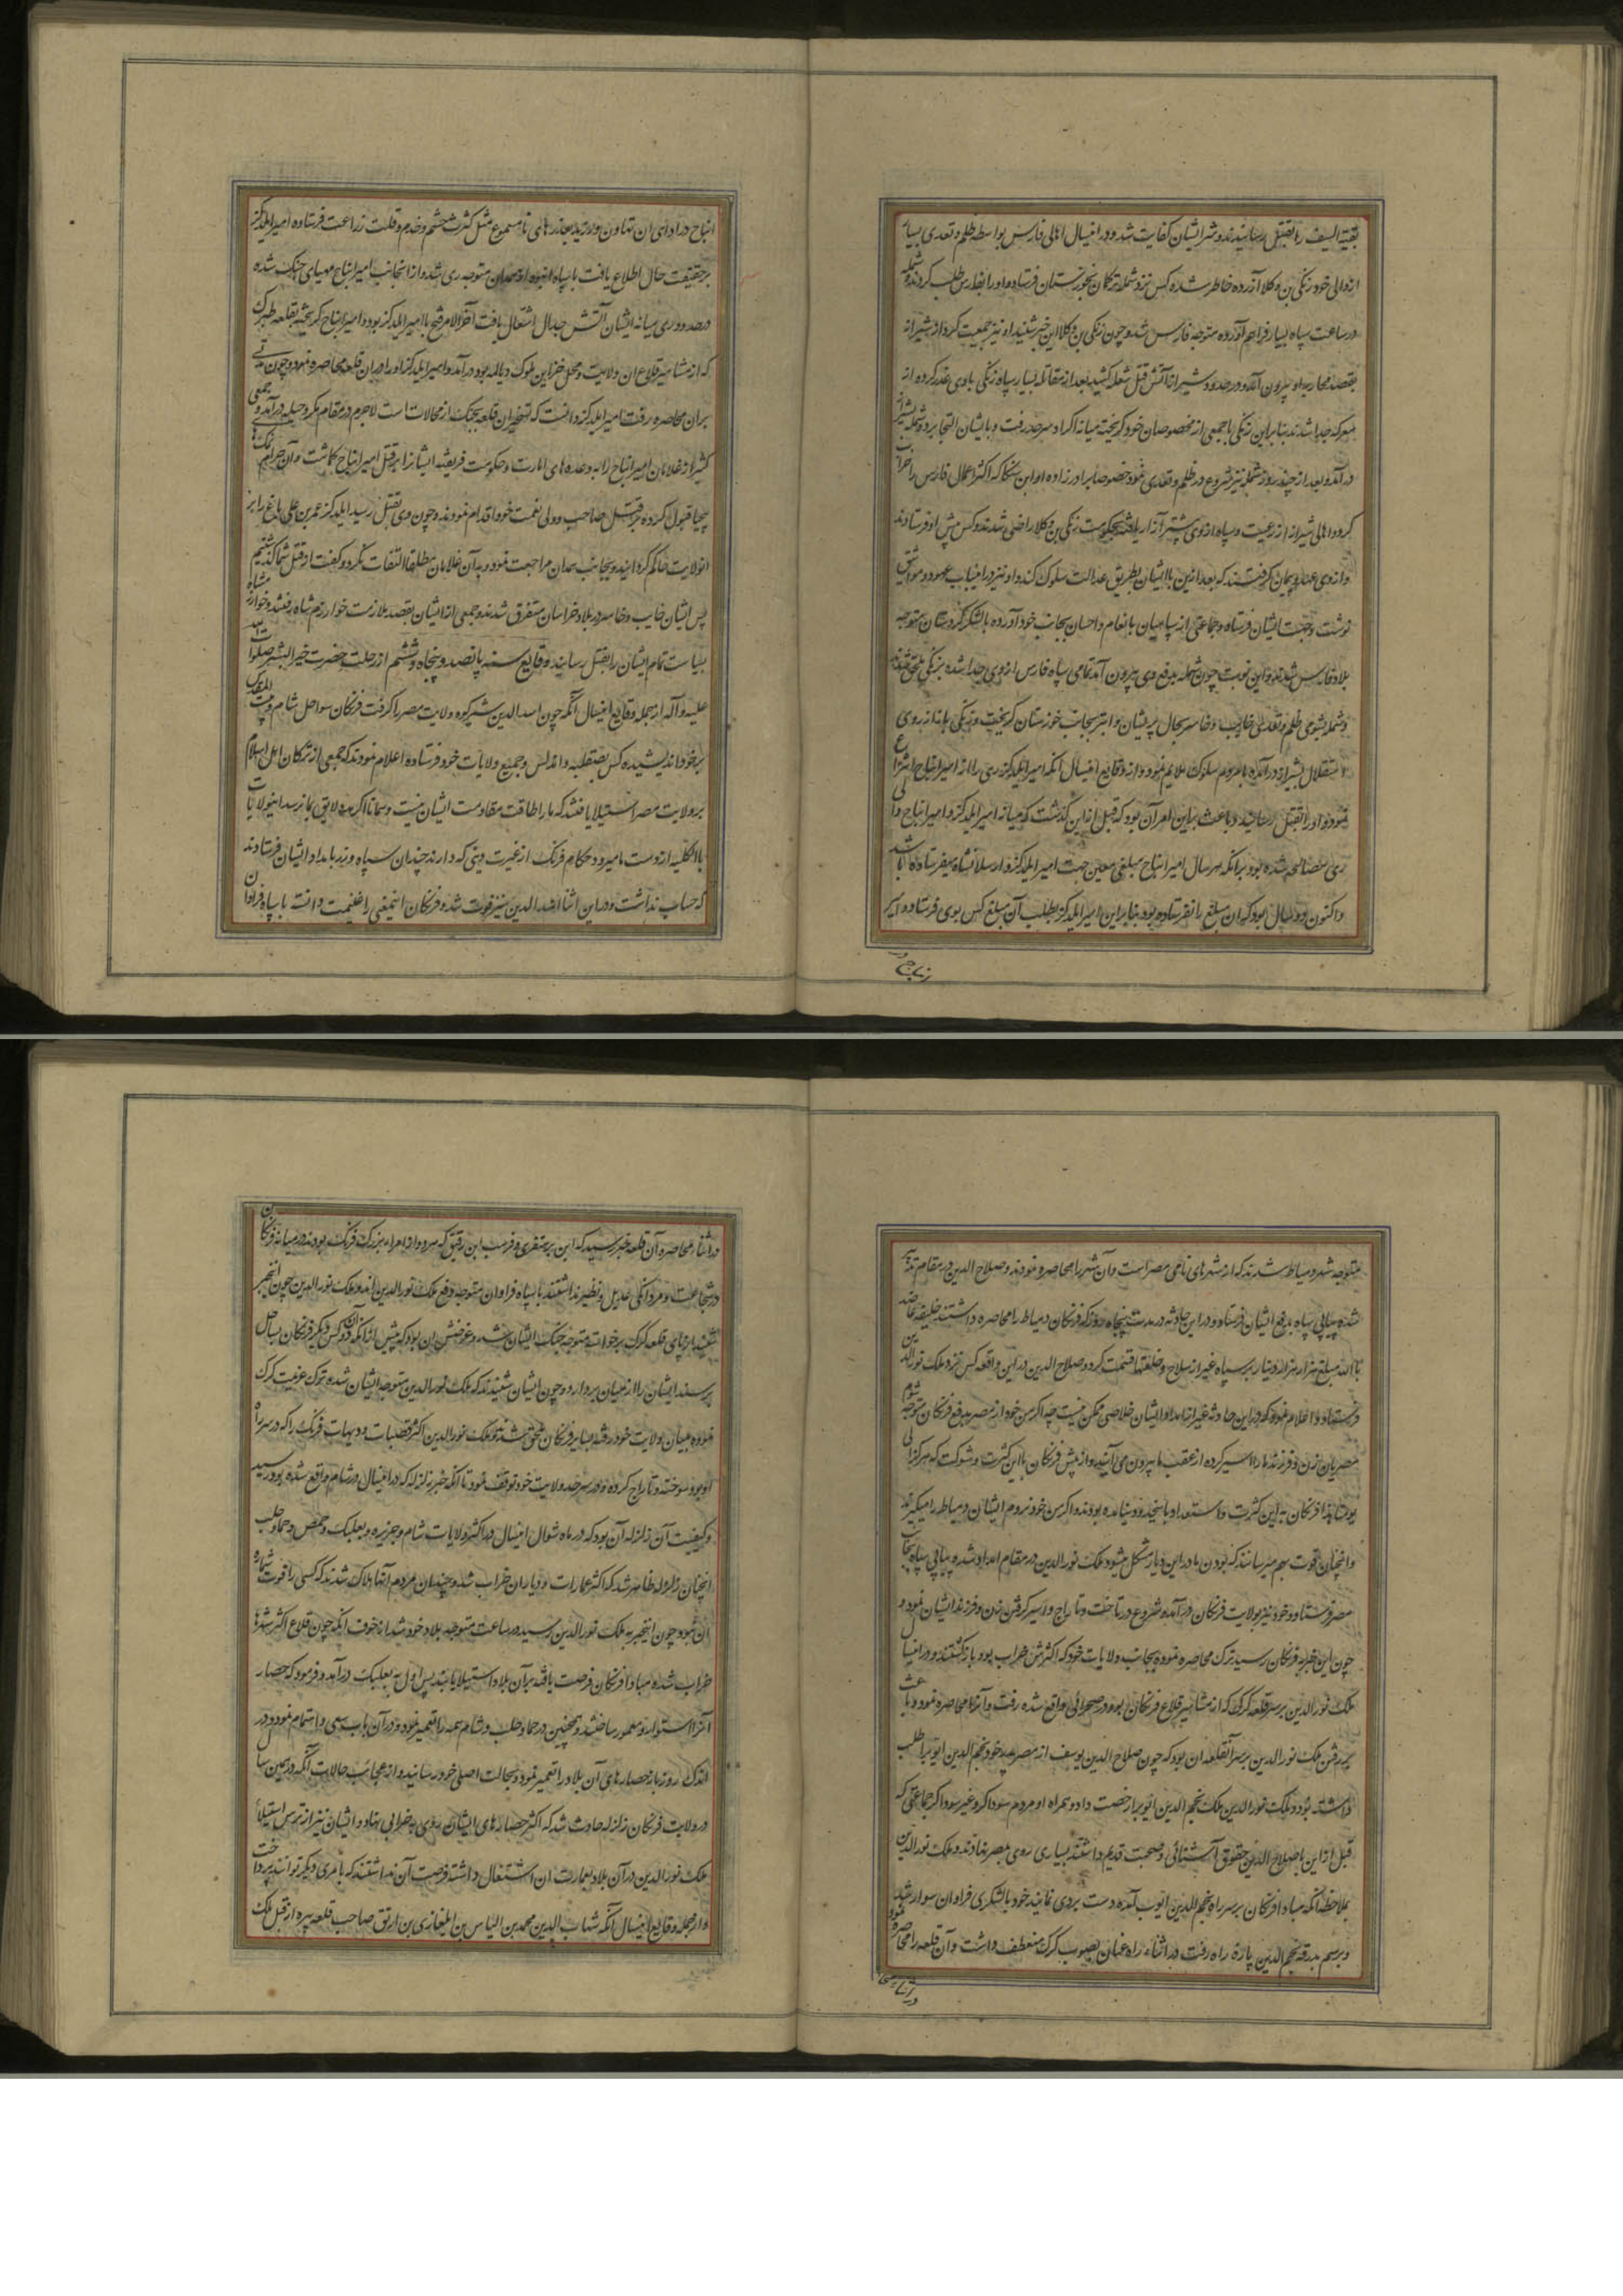 بقیة السیف را بقتل رسانیدند و شر ایشان کفایت شد و در اینسال اهالی فارس بواسطه ظلم و تعدی بسیار
از والی خود زنکی بن وکلا آزرده خاطر شده کس نزد شمله ترکمان بخورستان فرستاده او را بفارس طلب کردند و شمله
در ساعت سپاه بسیار فراهم آورده متوجه فارس شد و چون زنکی بن وکلا این خبر شنید او نیز جمعیت کرد از شیراز
بقصد محاربه او بیرون آمد و در حدود شیراز آتش قتل شعله کشید بعد از مقاتله بسیار سپاه زنکی باوی غدر کرده از
معرکه جدا شدند بنابراین زنکی با جمعی از مخصوصان خود کریخته میانه اکراد سرحد رفت و بایشان التجا برد و شمله بشیراز
در آمد و بعد از چند روز شمله نیز شروع در ظلم و تعدی نمود خصوصا برادر زاده او ابن سنکا که اکثر اعمال فارس را خراب
کرد و اهالی شیراز از رعیت و سپاه از وی بیشتر آزار یافتند بحکومت زنکی بن وکلا راضی شدند و کس پیش او فرستادند
و از وی عهد و پیمان کرفتند که بعد ازین با ایشان بطریق عدالت سلوک کند و او نیز در اینباب عهود و مواثیق
نوشت و جهت ایشان فرستاد و جماعتی از سپاهیان بانعام و احسان بجانب خود آورده با لشکر کردستان متوجه
بلاد فارس شدند و این نوبت چون شمله بدفع وی بیرون آمد تمامی سپاه فارس از وی جدا شده بزنکی ملحق شدند
و شمله بشومی ظلم و تعدی خایب و خاسر بحال پریشان و ابتر بجانب خوزستان کریخت و زنکی باز از روی
استقلال بشیراز در آمده با مردم سلوک ملایم نمود و از وقایع اینسال آنکه امیر ایلدکز ری را از امیر ایناج انتزاع
نمود و او را بقتل رسانید و باعث براین امر آن بود که قبل ازاین کذشت که میانه امیر ایلدکز و امیر ایناج والی
ری مصالحه شده بود برانکه هر سال امیر ایناج مبلغی معین جهت امیر ایلدکز و ارسلانشاه میفرستاده باشد
و اکنون دو سال بود که ان مبلغ را نفرستاده بود بنابراین امیر ایلدکز بطلب آن مبلغ کس بوی فرستاد و امیر
ایناج در
ایناج در ادای ان تهاون ورزید بعذرهای نامسموع مثل کثرت حشم و خدم و قلت زراعت فرستاده امیر ایلدکز
بر حقیقت حال اطلاع یافت با سپاه انبوه از همدان متوجه ری شد و از انجانب امیر ایناج مهیای جنک شده
در حدود ری میانه ایشان آتش جدال اشتعال یافت آخر الامر فتح با امیر ایلدکز بود و امیر ایناج کریخته بقلعه طبرک
که از مشاهیر قلاع ان ولایت و محل خزاین ملوک دیالمه بود در آمد و امیر ایلدکز او را در ان قلعه محاصره نمود و چون مدتی
بران محاصره رفت امیر ایلدکز دانست که تسخیر ان قلعه بجنک از محالات است لاجرم در مقام مکر و حیله در آمد و جمعی
کثیر از غلامان امیر ایناج را به وعده های امارت و حکومت فریفته ایشانرا بر قتل امیر ایناج کماشت و آن حرامنمکان
بیحیا قبول کرده بر قتل صاحب و ولی نعمت خود اقدام نمودند و چون وی بقتل رسید ایلدکز عمر بن علی باغ را بر
انولایت حاکم کردانید و بجانب همدان مراجعت نمود و به آن غلامان مطلقا التفات نکرد و کفت از قتل شما کذشتیم
پس ایشان خایب و خاسر در بلاد خراسان متفرق شدند و جمعی از ایشان بقصد ملازمت خوارزم شاه رفتند و خوارزمشاه
بسیاست تمام ایشان را بقتل رسانید وقایع سنه پانصد و پنجاه و ششم از رحلت حضرت خیر البشر صلوات الله
علیه و آله از جمله وقایع اینسال آنکه چون اسد الدین شیرکوه ولایت مصر را کرفت فرنکان سواحل شام
بر خود اندیشیده کس بصقلبه و اندلس و جمیع ولایات خود فرستاده اعلام نمودند که جمعی از ترکان اهل اسلام
بر ولایت مصر استیلا یافتند که ما را طاقت مقاومت ایشان نیست و همانا اکر مدد لایق بما نرسد اینولایات
بالکلیه از دست ما میرود حکام فرنک از غیرت دینی که دارند چندان سپاه و زر بامداد ایشان فرستادند
که حساب نداشت و در این اثنا اسد الدین نیز فوت شد و فرنکان اینمعنی را غنیمت دانسته با سپاه فراوان
متوجه شهر دمیاط شدند که از شهرهای نامی مصر است و آن شهر را محاصره نمودند و صلاح الدین در مقام تدبیر
شده پیاپی سپاه بدفع ایشان فرستاد و در این حادثه در مدت پنجاه روز که فرنکان دمیاط را محاصره داشتند خلیفه عاضد
بالله مبلغ هزار هزار دینار بر سپاه غیر از سلاح و خلعتها قسمت کرد و صلاح الدین در این واقعه کس نزد ملک نور الدین
فرستاد و اعلام نمود که در این حادثه غیر از امداد ایشان خلاصی ممکن نیست چه اکر من خود از مصر بدفع فرنکان متوجه شوم
مصریان زن و فرزند ما را اسیر کرده از عقب ما بیرون می آیند و از پیش فرنکان با این کثرت و شوکت که هرکز
فرنکان به این کثرت و استعداد باینحدود نیامده بودند و اکر من خود نروم ایشان دمیاط را میکیرند
و انچنان قوت بهم میرسانند که بودن ما در این دیار مشکل میشود ملک نور الدین در مقام امداد شد و پیاپی سپاه بجانب
مصر فرستاد و خود نیز بولایت فرنکان در آمده شروع در تاخت و تاراج و اسیر کرفتن زن و فرزند ایشان نمود و
چون این خبر به فرنکان رسید ترک محاصره نموده بجانب ولایات خود که اکثرش خراب بود بازکشتند و در اینسال
ملک نور الدین بر سر قلعه کرک که از مشاهیر قلاع فرنکان بود و در صحرائی واقع شده رفت و آنرا محاصره نمود و باعث
بر رفتن ملک نور الدین بر سر آنقلعه ان بود که چون صلاح الدین یوسف از مصر پدر خود نجم الدین ایوب را طلب
داشته بود و ملک نور الدین ملک نجم الدین ایوب را رخصت داد و همراه او مردم سوداکر و غیر سوداکر جماعتی که
قبل ازاین با صلاح الدین حقوق آشنائی و صحبت قدیم داشتند بسیاری روی بمصر نهادند و ملک نور الدین
بملاحظه آنکه مبادا فرنکان بر سر راه نجم الدین ایوب آمده دست بردی نمایند خود با لشکری فراوان سوار شد
و برسم بدرقه نجم الدین پارۀ راه رفت در اثناء راه عنان بصوب کرک منعطف داشت و آن قلعه را محاصره نمود
در اثناء محا
در اثناء محاصره آن قلعه خبر رسید که ابن هنفری و قریب ابن رقیق که هر دو از امراء بزرک فرنک بودند در میانه فرنکان
در شجاعت و مردانکی عدیل و نظیر نداشتند با سپاه فراوان متوجه دفع ملک نور الدین اند و ملک نور الدین چون اینخبر
شنید از پای قلعه کرک برخواسته متوجه جنک ایشان شد و غرضش ان بود که پیش از آنکه آن دو کس دیکر فرنکان بساحل
برسند ایشان را از میان بردارد و چون ایشان شنیدند که ملک نور الدین متوجه ایشان شده ترک عزیمت کرک
نموده بمیان ولایت خود رفته بسایر فرنکان ملحق شدند و ملک نور الدین اکثر قصبات و دیهات فرنک را که در سر راه
او بود سوخته و تاراج کرده و در سرحد ولایت خود توقف نمود تا آنکه خبر زلزله که در اینسال در شام واقع شده بود رسید
و کیفیت آن زلزله آن بود که در ماه شوال اینسال در اکثر ولایات شام و جزیره و بعلبک و حمص و حما و حلب
انچنان زلزله ظاهر شد که اکثر عمارات و دیار ان خراب شد و چندان مردم آنها هلاک شدند که کسی را قوت شماره
آن نبود چون اینخبر به ملک نور الدین رسید در ساعت متوجه بلاد خود شد از خوف آنکه چون قلاع اکثر شهرها
خراب شده مبادا فرنکان فرصت یافته بر آن بلاد استیلا یابند پس اول به بعلبک در آمد و فرمود که حصار
آنرا استوار و معمور ساختند و همچنین در حما و حلب و شام همه را تعمیر نمود و در آن باب سعی و اهتمام نمود و در
اندک روز باز حصارهای آن بلاد را تعمیر نمود و بحالت اصلی خود رسانید و از عجائب حالات آنکه در همین سال
در ولایت فرنکان زلزله حادث شد که اکثر حصارهای ایشان روی به خرابی نهاد و ایشان نیز از ترس استیلاء
ملک نور الدین در آن بلاد بعمارت ان اشتغال داشته فرصت آن نداشتند که بامری دیکر توانند پرداخت
و از جمله وقایع اینسال آنکه شهاب الدین محمد بن الیاس بن ایلغازی بن ارتق صاحب قلعه بیره از قبل ملک